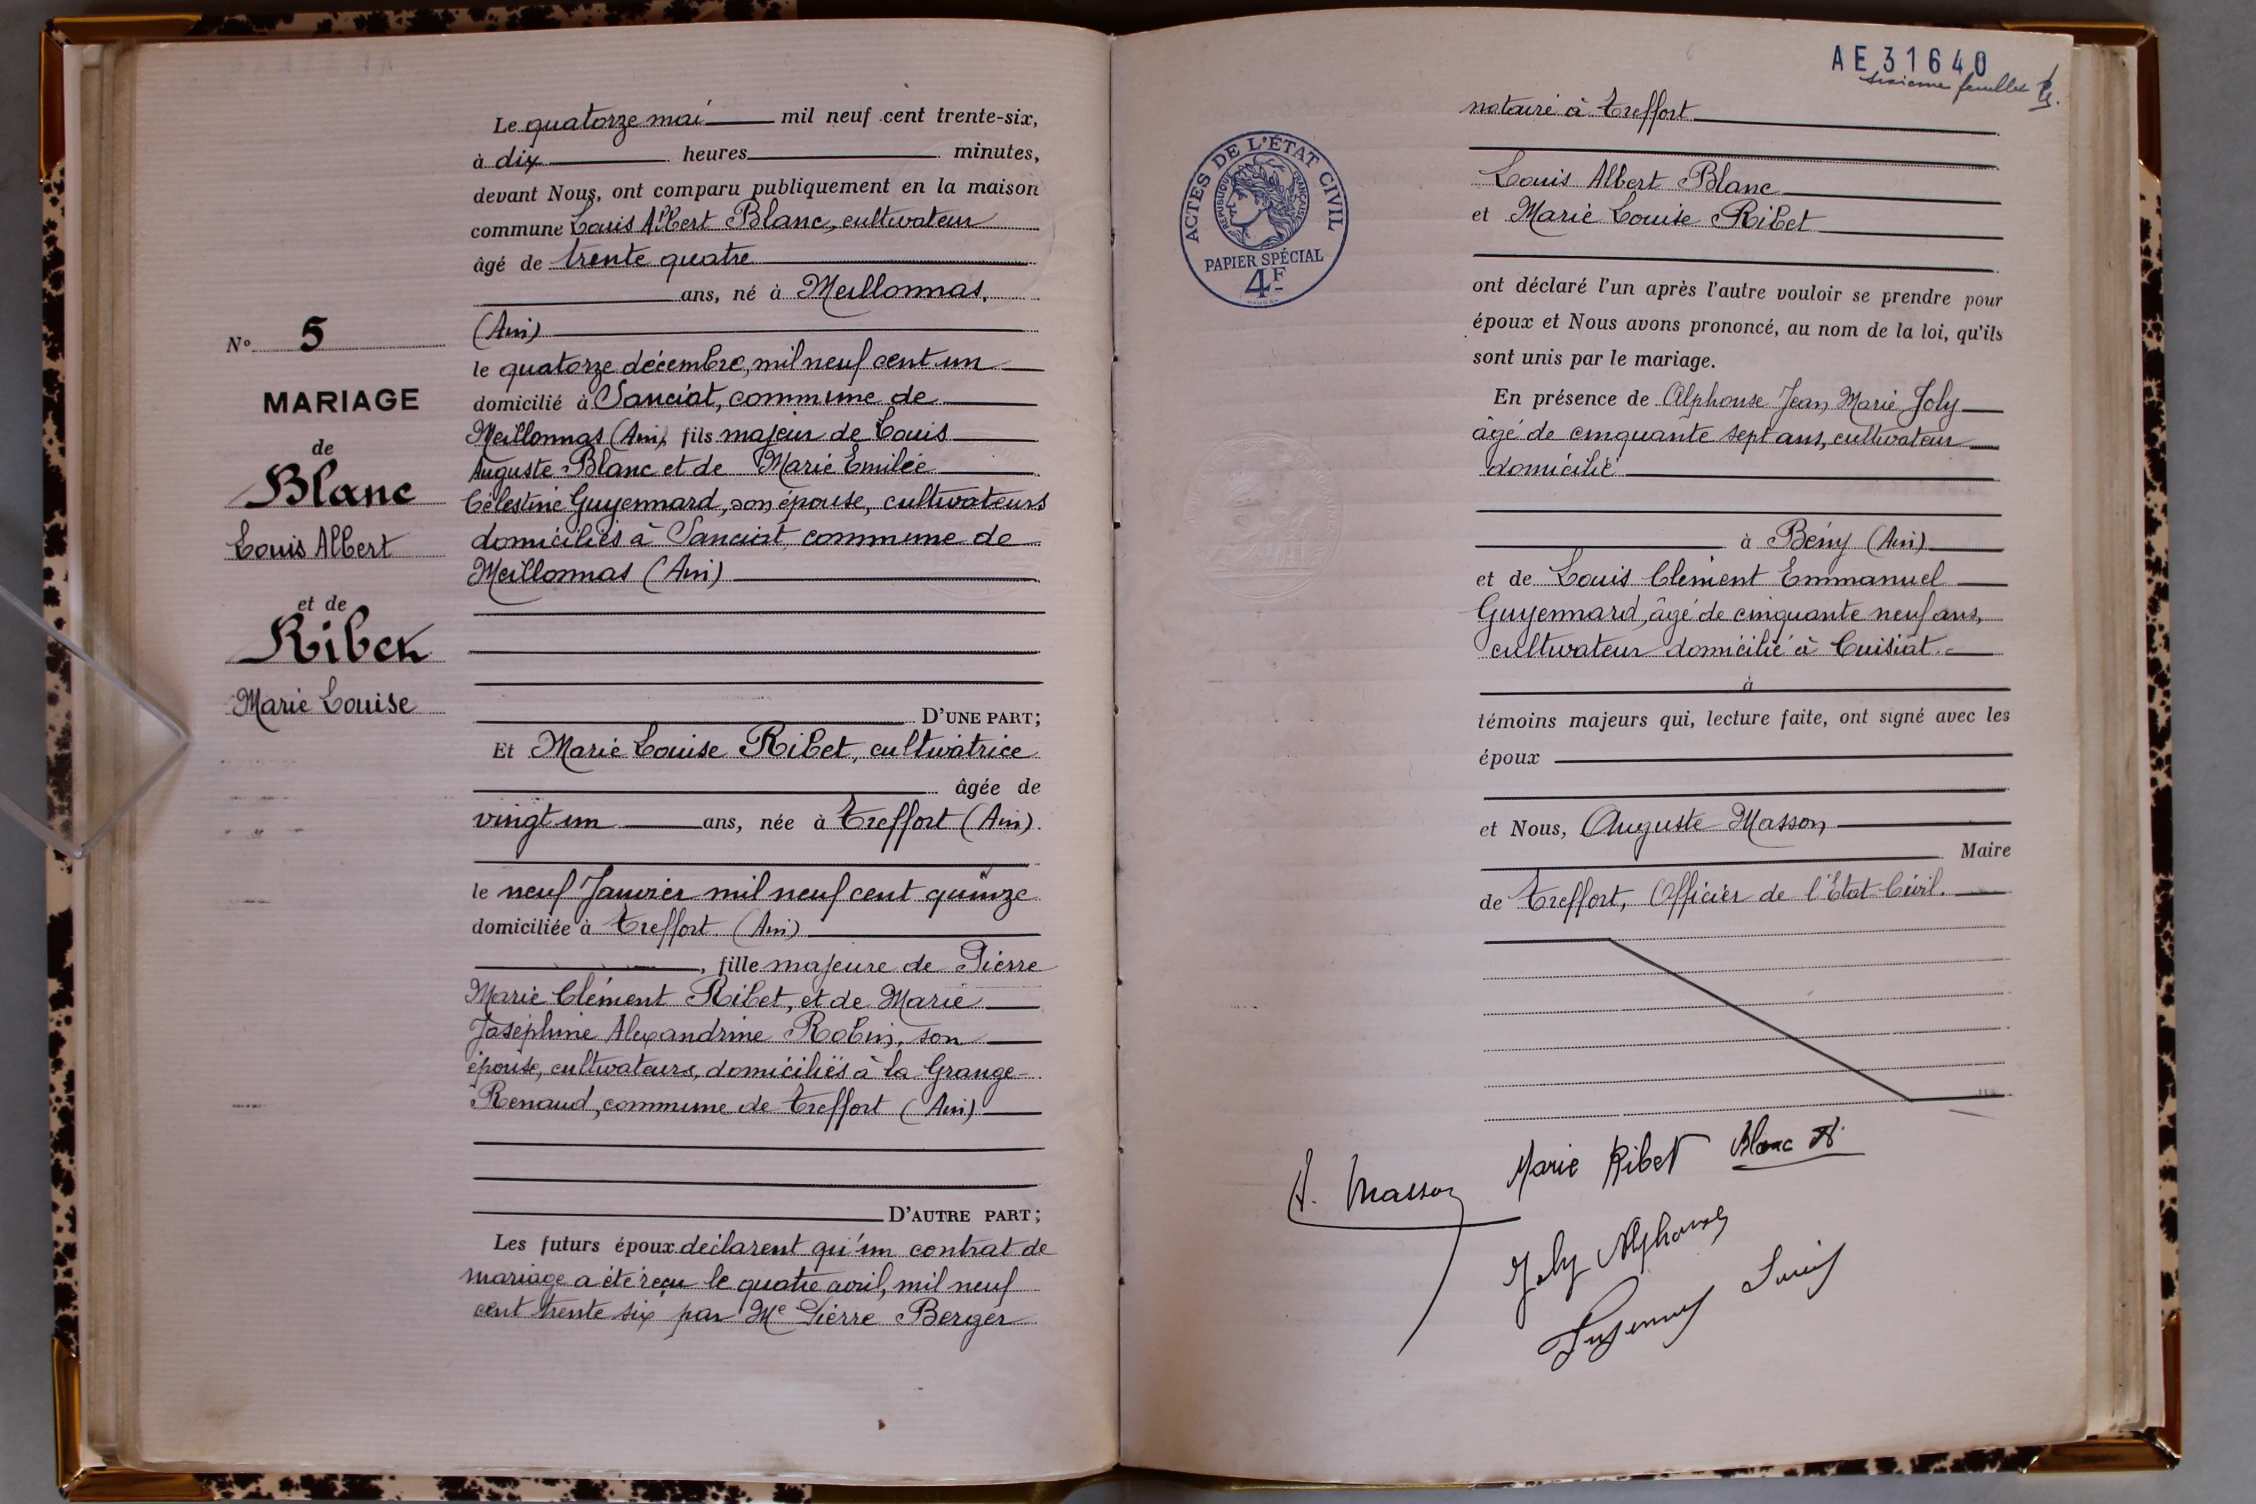 N° 5
MARIAGE
de
Blanc
Louis Albert
et de
Ribet
Marie Louise
Le quatorze mai mil neuf cent trente-six,
à dix heures minutes,
devant Nous, ont comparu publiquement en la maison
commune Louis Albert Blanc, cultivateur
âgé de trente quatre
ans, né à Meillonnas,
(Ain)
le quatorze décembre, mil neuf cent un
domicilié à Sanciat, commune de
Meillonnas (Ain), fils majeur de Louis
Auguste Blanc et de Marie Emilée
Célestine Guyennard, son épouse, cultivateurs
domiciliés à Sanciat commune de
Meillonnas (Ain)
D'UNE PART;
Et Marie Louise Ribet, cultivatrice
âgée de
vingt un ans, née à Treffort (Ain).
le neuf Janvier mil neuf cent quinze
domiciliée à Treffort (Ain)
, fille majeure de Pierre
Marie Clément Ribet, et de Marie
Joséphine Alexandrine Robin, son
épouse, cultivateurs, domiciliés à la Grange-
Renaud, commune de Treffort (Ain)
D'AUTRE PART;
Les futurs époux déclarent qu'un contrat de
mariage a été reçu le quatre avril, mil neuf
cent trente six par Me Pierre Berger
AE31640
sixième feuillet
notaire à Treffort
ACTES DE L'ÉTAT CIVIL
RÉPUBLIQUE FRANÇAISE
PAPIER SPÉCIAL
4F
Louis Albert Blanc
et Marie Louise Ribet
ont déclaré l'un après l'autre vouloir se prendre pour
époux et Nous avons prononcé, au nom de la loi, qu'ils
sont unis par le mariage.
En présence de Alphonse Jean Marie Joly
âgé de cinquante sept ans, cultivateur
domicilié
à Bény (Ain)
et de Louis Clément Emmanuel
Guyennard, âgé de cinquante neuf ans,
cultivateur domicilié à Cuisiat.
à
témoins majeurs qui, lecture faite, ont signé avec les
époux
et Nous, Auguste Masson
Maire
de Treffort, Officier de l'Etat-Civil.
A. Masson Marie Ribet Blanc A.
Joly Alphonse
Guyennard Louis